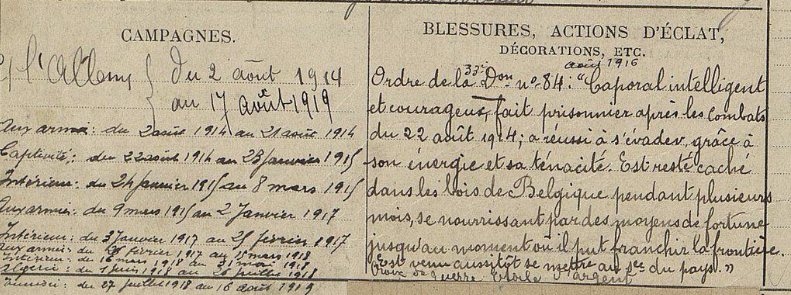 CAMPAGNES.
C/ l'Allem
du 2 août 1914
au 17 août 1919
Aux armées: du 2 août 1914 au 21 août 1914
Captivité: du 22 août 1914 au 23 janvier 1915
Intérieur: du 24 janvier 1915 au 8 mars 1915
Aux armées: du 9 mars 1915 au 2 Janvier 1917
Intérieur: du 3 Janvier 1917 au 25 février 1917
Aux armées: du 26 février 1917 au 15 mars 1918
Intérieur: du 16 mars 1918 au 31 mai 1918
Algérie: du 1 juin 1918 au 26 juillet 1918
du 27 juillet 1918 au 16 août 1919
BLESSURES, ACTIONS D'ÉCLAT,
DÉCORATIONS, ETC.
août 1916
Ordre de la 33e Don no 84: "Caporal intelligent
et courageux, fait prisonnier après les combats
du 22 août 1914; a réussi à s'évader, grâce à
son énergie et sa ténacité. Est resté caché
dans les bois de Belgique pendant plusieurs
mois, se nourrissant par des moyens de fortune
jusqu'au moment où il put franchir la frontière.
Est venu aussitôt se mettre au Sce du pays."
Croix de guerre Etoile d'argent